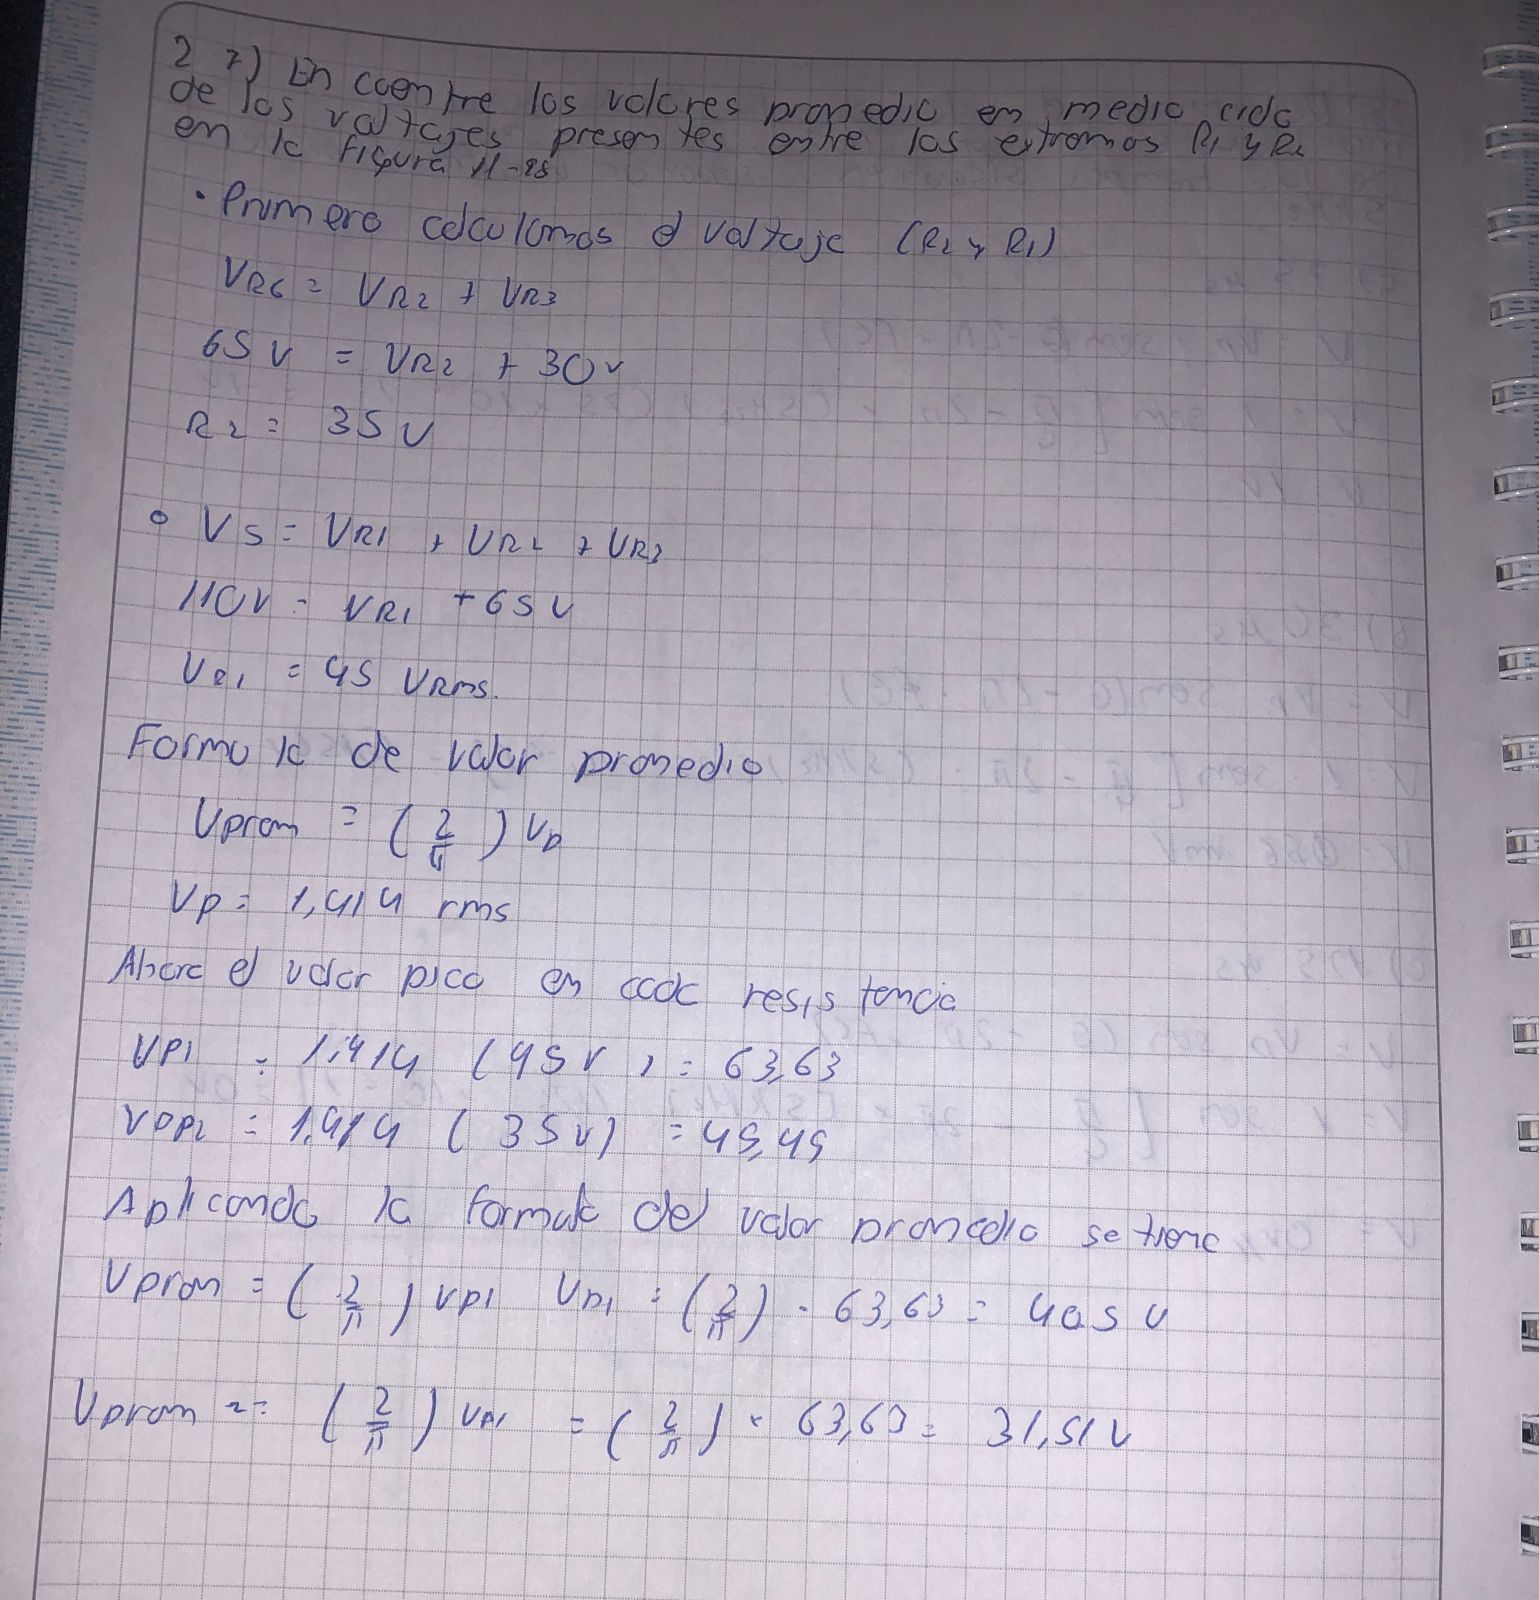 27) Encuentre los valores promedio en medio ciclo
de los voltajes presentes entre los extremos R1 y R2
en la figura 11-88
• Primero calculamos el voltaje (R2 y R1)
VR6 = VR2 + VR3
65 V = VR2 + 30v
R2 = 35 V
° VS = VR1 + VR2 + VR3
110V = VR1 + 65 V
VR1 = 45 VRms.
Formula de valor promedio
Vprom = (2/π) Vp
Vp = 1,414 rms
Ahora el valor pico en cada resistencia
VP1 = 1.414 (45V) = 63,63
VPP2 = 1.414 (35V) = 49,49
Aplicando la formula del valor promedio se tiene
Vprom = (2/π) VP1 VR1 = (2/π) · 63,63 = 40,5 V
Vprom 2 = (2/π) VP1 = (2/π) · 63,63 = 31,51 V